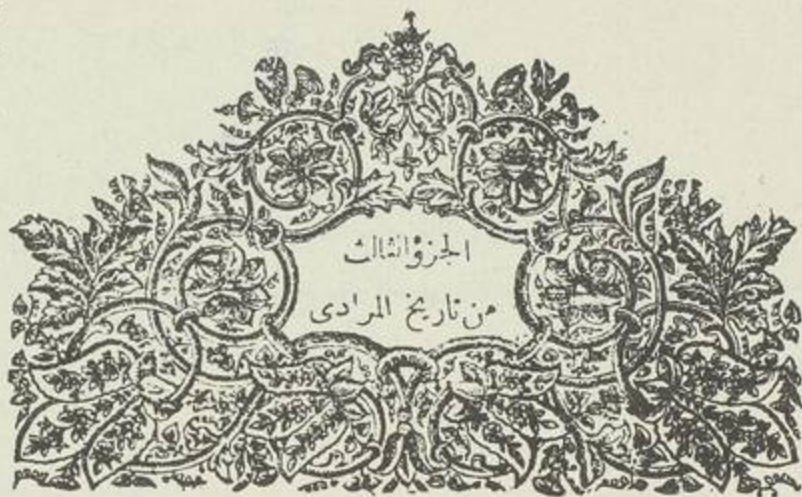 الجزؤ الثالث
من تاريخ المرادى